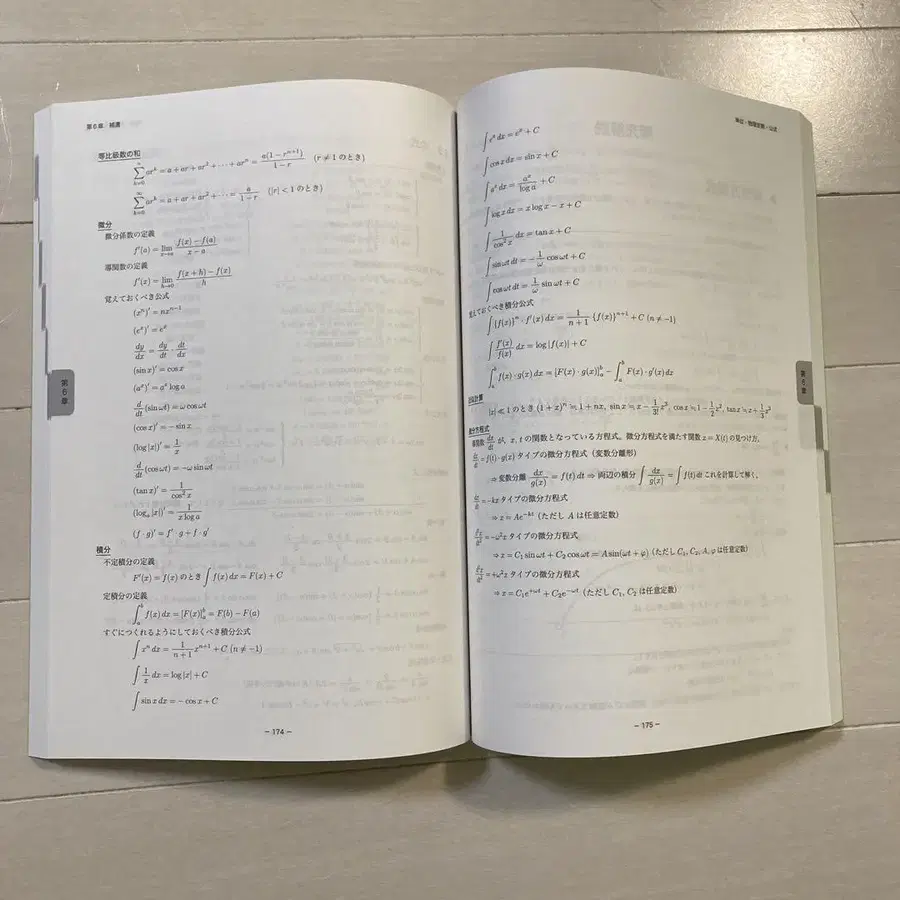 第6章 補遺
等比級数の和
\sum_{k=0}^{n} ar^k = a + ar + ar^2 + ··· + ar^n = \frac{a(1-r^{n+1})}{1-r} (r ≠ 1 のとき)
\sum_{k=0}^{∞} ar^k = a + ar + ar^2 + ··· = \frac{a}{1-r} (|r| < 1 のとき)
微分
微分係数の定義
f'(a) = \lim_{x→a} \frac{f(x)-f(a)}{x-a}
導関数の定義
f'(x) = \lim_{h→0} \frac{f(x+h)-f(x)}{h}
覚えておくべき公式
(x^n)' = nx^{n-1}
(e^x)' = e^x
\frac{dy}{dx} = \frac{dy}{dt}·\frac{dt}{dx}
(sin x)' = cos x
(a^x)' = a^x log a
\frac{d}{dt}(sin ωt) = ω cos ωt
(cos x)' = − sin x
(log |x|)' = \frac{1}{x}
\frac{d}{dt}(cos ωt) = −ω sin ωt
(tan x)' = \frac{1}{cos^2 x}
(log_a |x|)' = \frac{1}{x log a}
(f·g)' = f'·g + f·g'
積分
不定積分の定義
F'(x) = f(x) のとき ∫ f(x) dx = F(x) + C
定積分の定義
∫_a^b f(x) dx = [F(x)]_a^b = F(b) − F(a)
すぐにつくれるようにしておくべき積分公式
∫ x^n dx = \frac{1}{n+1} x^{n+1} + C (n ≠ −1)
∫ \frac{1}{x} dx = log |x| + C
∫ sin x dx = − cos x + C
− 174 −
第6章
∫ e^x dx = e^x + C
∫ cos x dx = sin x + C
∫ a^x dx = \frac{a^x}{log a} + C
∫ log x dx = x log x − x + C
∫ \frac{1}{cos^2 x} dx = tan x + C
∫ sin ωt dt = −\frac{1}{ω} cos ωt + C
∫ cos ωt dt = \frac{1}{ω} sin ωt + C
覚えておくべき積分公式
∫ {f(x)}^n · f'(x) dx = \frac{1}{n+1} {f(x)}^{n+1} + C (n ≠ −1)
∫ \frac{f'(x)}{f(x)} dx = log |f(x)| + C
∫_a^b f(x)·g(x) dx = [F(x)·g(x)]_a^b − ∫_a^b F(x)·g'(x) dx
近似計算
|x| ≪ 1 のとき (1+x)^n ≒ 1 + nx, sin x ≒ x − \frac{1}{3!}x^3, cos x ≒ 1 − \frac{1}{2}x^2, tan x ≒ x + \frac{1}{3}x^3
微分方程式
導関数 \frac{dx}{dt} が, x, t の関数となっている方程式。微分方程式を満たす関数 x = X(t) の見つけ方。
\frac{dx}{dt} = f(t)·g(x) タイプの微分方程式 (変数分離形)
⇒ 変数分離 \frac{dx}{g(x)} = f(t) dt ⇒ 両辺の積分 ∫ \frac{dx}{g(x)} = ∫ f(t) dt これを計算して解く。
\frac{dx}{dt} = −kx タイプの微分方程式
⇒ x = Ae^{−kt} (ただし A は任意定数)
\frac{d^2x}{dt^2} = −ω^2x タイプの微分方程式
⇒ x = C_1 sin ωt + C_2 cos ωt = A sin(ωt + φ) (ただし C_1, C_2, A, φ は任意定数)
\frac{d^2x}{dt^2} = +ω^2x タイプの微分方程式
⇒ x = C_1e^{+ωt} + C_2e^{−ωt} (ただし C_1, C_2 は任意定数)
− 175 −
第6章